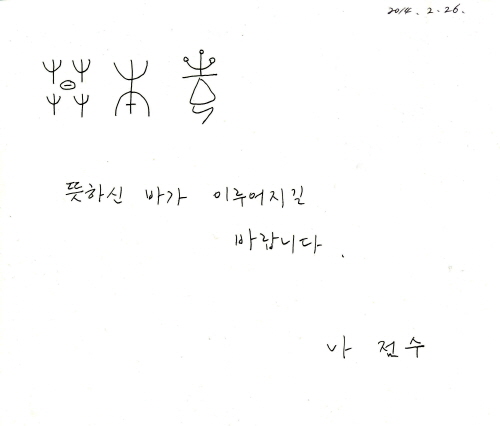 2014. 2. 26.
뜻하신 바가 이루어지길
바랍니다.
나 점수